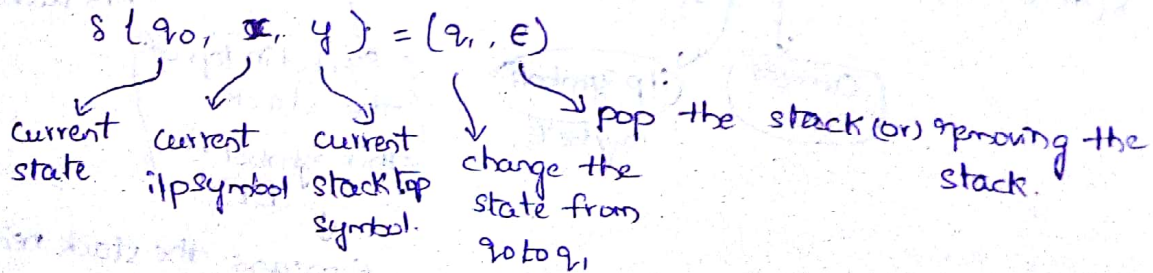 δ(q0, x, y) = (q1, ε)
current state.
current i/p symbol
current stack top symbol.
change the state from q0 to q1
pop the stack (or) removing the stack.